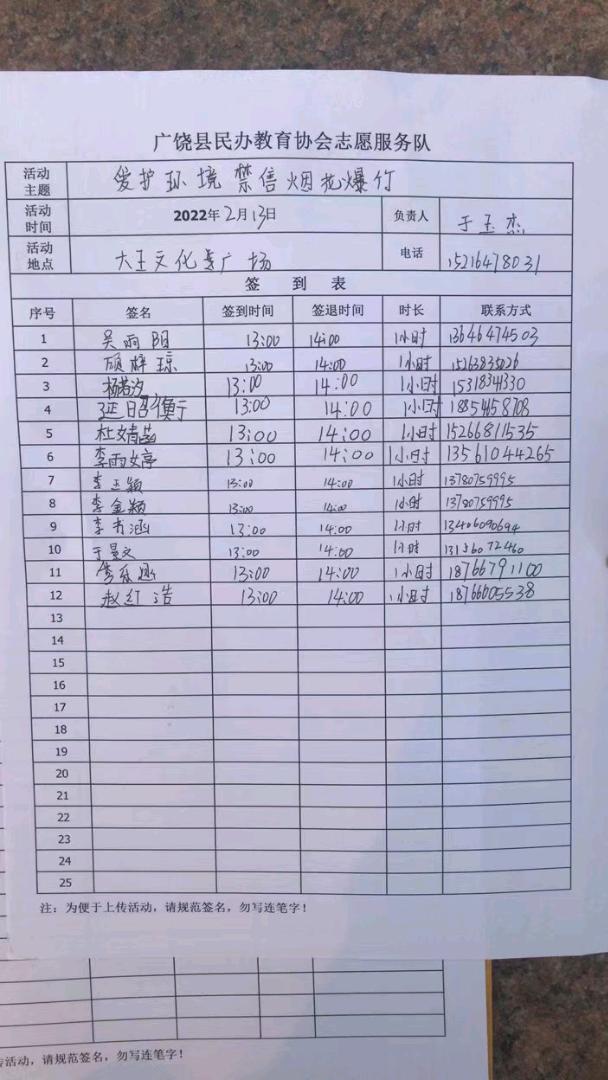 广饶县民办教育协会志愿服务队
活动主题 爱护环境 禁售烟花爆竹
活动时间 2022年2月13日 负责人 于玉杰
活动地点 大王文化广场 电话 15216478031
签到表
序号 签名 签到时间 签退时间 时长 联系方式
1 吴雨阳 13:00 14:00 1小时 13646474503
2 顾梓琼 13:00 14:00 1小时 15263835026
3 杨若汐 13:00 14:00 1小时 15318341330
4 延昭衡 13:00 14:00 1小时 18854158708
5 杜婧菡 13:00 14:00 1小时 15266811535
6 李雨婷 13:00 14:00 1小时 13561044265
7 李玉颖 13:00 14:00 1小时 13780759995
8 李金颖 13:00 14:00 1小时 13780759995
9 李书涵 13:00 14:00 1小时 13406090694
10 于曼文 13:00 14:00 1小时 13156072460
11 13:00 14:00 1小时 18766791100
12 赵红浩 13:00 14:00 1小时 18766605538
13
14
15
16
17
18
19
20
21
22
23
24
25
注：为便于上传活动，请规范签名，勿写连笔字！
活动，请规范签名，勿写连笔字！